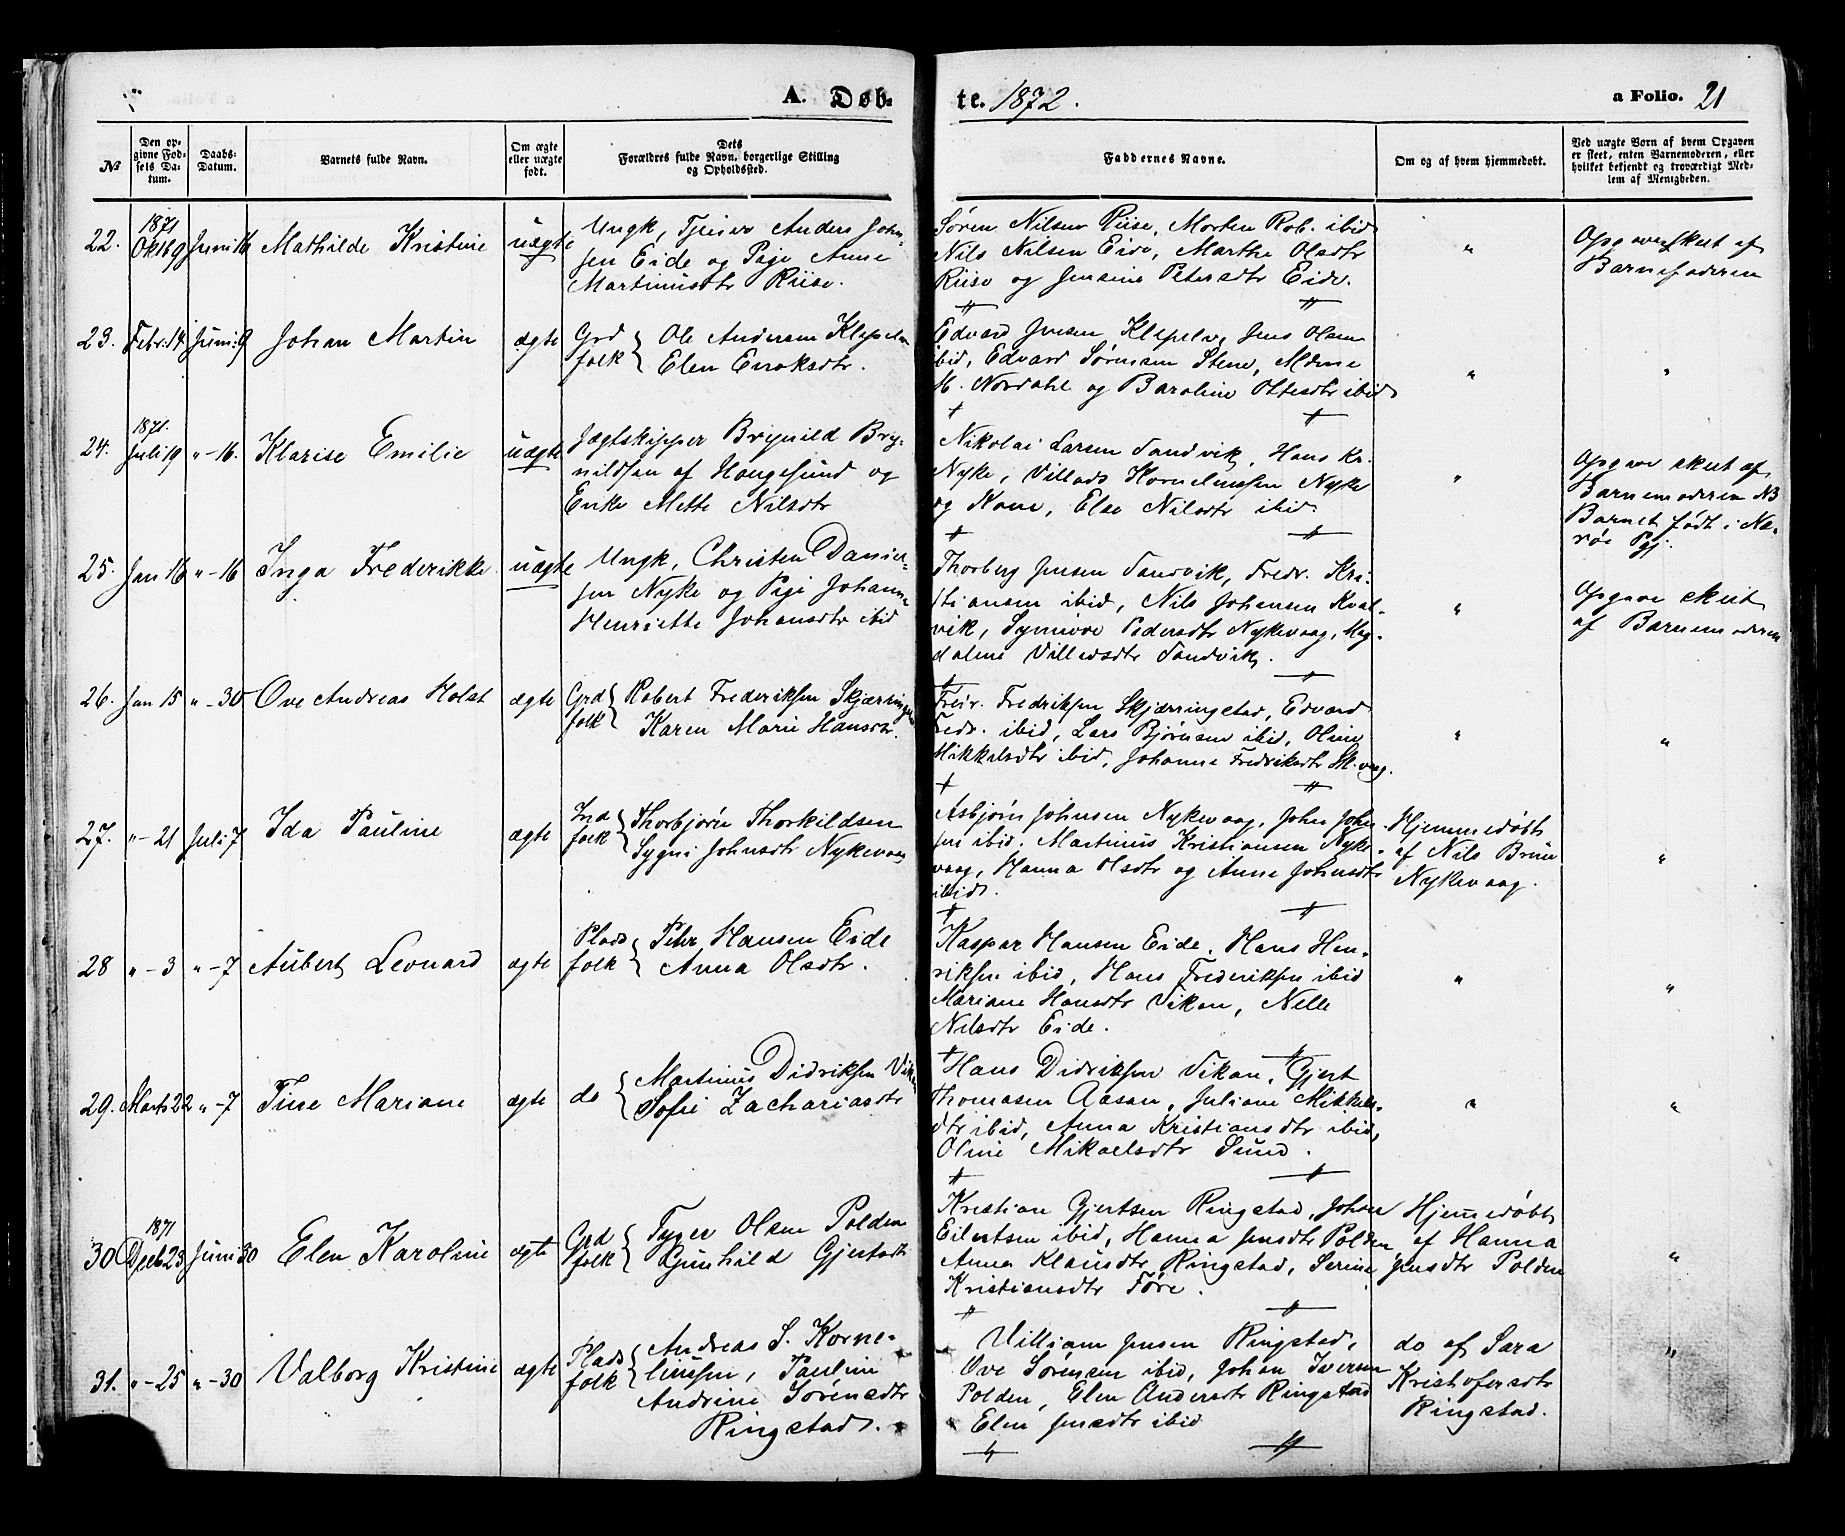 A. Døb-
te. 1872.
a Folio. 21
№
Den op-
givne Fød-
sels Da-
tum.
Daabs-
Datum.
Barnets fulde Navn.
Om ægte
eller uægte
født.
Dets
Forældres fulde Navn, borgerlige Stilling
og Opholdssted.
Faddernes Navne.
Om og af hvem hjemmedøbt.
Ved uægte Børn af hvem Opgaven
er skeet, enten Barnemoderen, eller
hvilket bekjendt og troværdigt Med-
lem af Menigheden.
22.
1871
Oktb 9
Juni 16
Mathilde Kristine
uægte
Ungk, Tjener Anders John-
sen Eide og Pige Anne
Martinusdtr Riise.
Søren Nilsen Riise, Morten Rob. ibid
Nils Nilsen Eide, Marthe Olsdtr
Riise og Jensine Petersdtr Eide.
"
Opgaven skeet af
Barnefaderen
23.
Febr. 14
Juni 9
Johan Martin
ægte
Grd
folk
Ole Andersen Klepelv
Elen Enoksdtr.
Edvard Jensen Klepelv, Jens Olsen
ibid, Edvard Sørensen Stene, Mdme
M. Nordahl og Baroline Ottesdtr ibid
"
"
24.
1871.
Juli 19
"-16.
Klarise Emilie
uægte
Jægtskipper Brynild Bry-
nildsen af Haugesund og
Enke Mette Nilsdtr
Nikolai Larsen Sandvik, Hans Kr.
Nyke, Villads Korneliussen Nyke
og Kone, Else Nilsdtr ibid
"
Opgave skeet af
Barnemoderen NB
Barnet født i Næ-
røe Pgj.
25.
Jan 16
"-16
Inga Frederikke
uægte
Ungk, Christen Daniel-
sen Nyke og Pige Johanna
Henriette Johansdtr ibid
Thorberg Jensen Sandvik, Fredr. Kri-
stiansen ibid, Nils Johansen Kval-
vik, Synnøve Pedersdtr Nykevaag, Mag-
dalene Villadsdtr Sandvik.
"
Opgave skeet
af Barnemoderen
26.
Jan 15
"-30
Ove Andreas Holst
ægte
Grd
folk
Robert Frederiksen Skjærringstad
Karen Marie Hansdtr.
Fredr. Fredriksen Skjærringstad, Edvard
Fredr. ibid, Lars Bjørnsen ibid, Oline
Mikkelsdtr ibid, Johanne Fredriksdtr Sk.vaag.
"
"
27.
"-21
Juli 7
Ida Pauline
ægte
Ind
folk
Thorbjørn Thorkildsen
Sygni Johnsdtr Nykevaag
Asbjørn Johnsen Nykevaag, John John-
sen ibid. Martinus Kristiansen Nyke-
vaag, Hanna Olsdtr og Anne Johnsdtr
ibid.
Hjemmedøbt
af Nils Brun
Nykevaag.
"
28
"-3
"-7
Aubert Leonard
ægte
Plads
folk
Peter Hansen Eide
Anna Olsdtr.
Kaspar Hansen Eide, Hans Hen-
riksen ibid, Hans Frederiksen ibid
Mariane Hansdtr Vikan, Nelle
Nilsdtr Eide.
"
"
29.
Marts 22
"-7
Tine Mariane
ægte
do
Martinus Didriksen Vikan
Sofie Zachariasdtr
Hans Didriksen Vikan, Gjert
Thomasen Aasan, Juliane Mikkels-
dtr ibid, Anna Kristiansdtr ibid,
Oline Mikaelsdtr Sund.
"
"
30
1871
Dceb 23
Juni 30
Elen Karoline
ægte
Grd
folk
Tyger Olsen Polden
Gunhild Gjertsdtr
Kristian Gjertsen Ringstad, Johan
Eilertsen ibid, Hanna Jensdtr Polden
Anna Klausdtr Ringstad, Serine
Kristiansdtr Føre.
Hjemmedøbt
af Hanna
Jensdtr Polden
"
31.
"-25
"-30
Valborg Kristine
ægte
Plads
folk
Andreas S. Korne-
liussen, Pauline
Andrine Sørensdtr
Ringstad.
Villiam Jensen Ringstad,
Ove Sørensen ibid, Johan Iversen
Polden, Elen Andersdtr Ringstad
Elen Jensdtr ibid
do af Sara
Kristofersdtr
Ringstad.
"